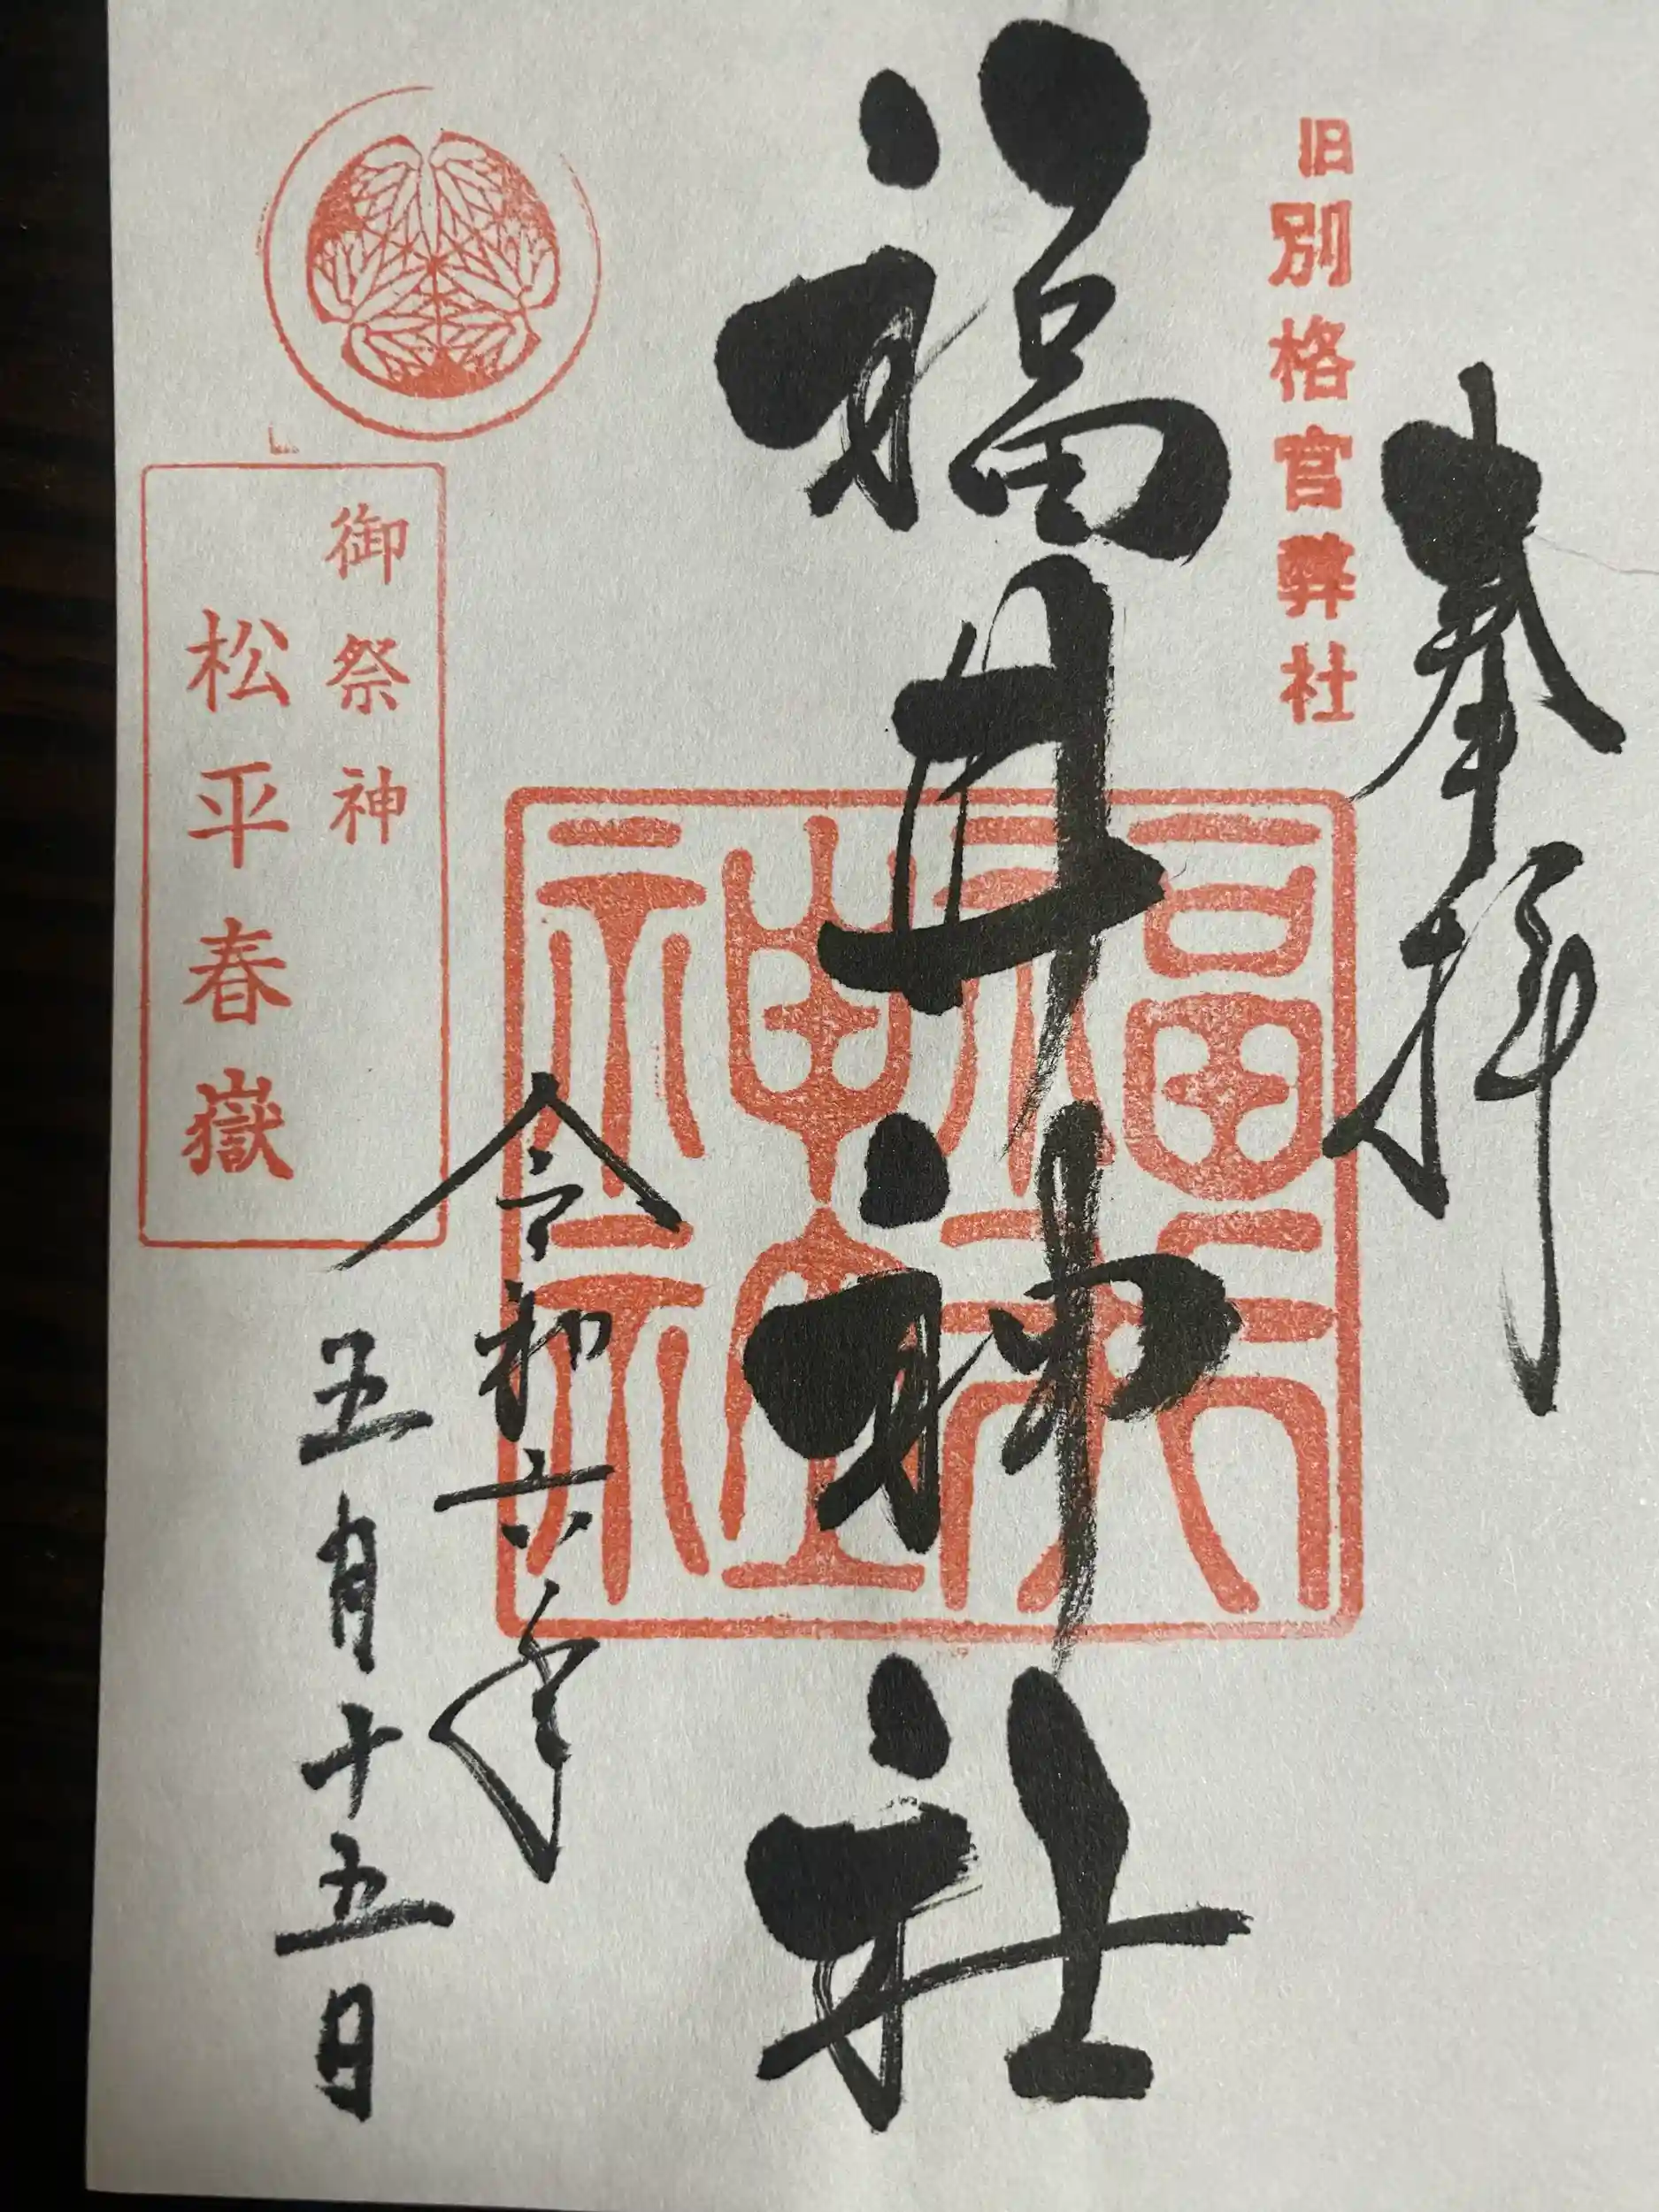 奉拝
旧別格官弊社
福井神社
福
神社
令和六年
五月十五日
御祭神
松平春嶽